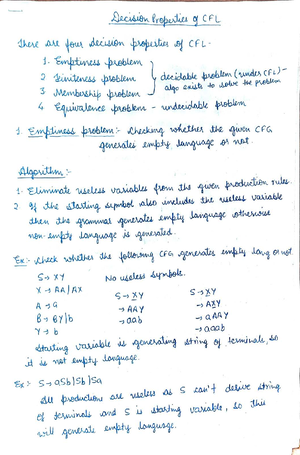 Decision Properties of CFL
There are four decision properties of CFL -
1. Emptiness problem
2. Finiteness problem
3 Membership problem
decidable problem (under CFL) -
algo exists to solve the problem
4 Equivalence problem - undecidable problem
1. Emptiness problem :- Checking whether the given CFG
generates empty language or not.
Algorithm :-
1. Eliminate useless variables from the given production rules.
2. If the starting symbol also includes the useless variable
then the grammar generates empty language otherwise
non-empty language is generated.
Ex:- Check whether the following CFG generates empty lang or not.
S → XY No useless symbols.
X → AA/AX S → XY S → XY
A → a → AAY → AXY
B → BY/b → aab → aAAY
Y → b → aaab
Starting variable is generating string of terminals, so
it is not empty language.
Ex:- S → aSb/Sb/Sa
All production are useless as S can't derive string
of terminals and S is starting variable, so this
will generate empty language.